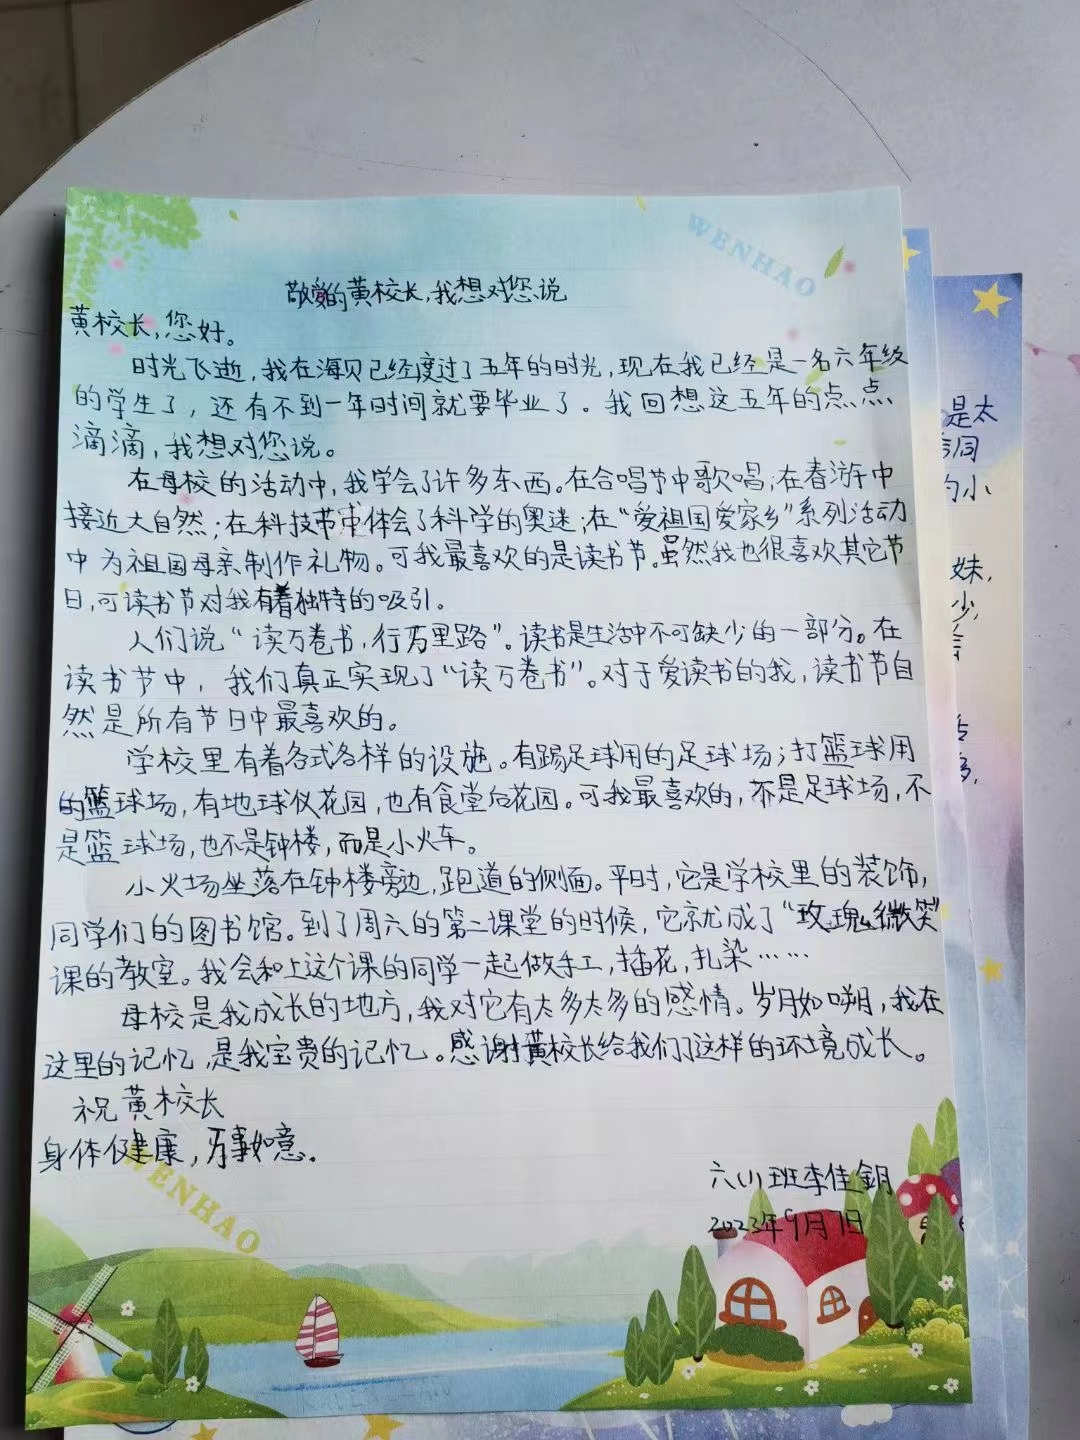 WENHAO
敬爱的黄校长,我想对您说
黄校长,您好。
时光飞逝,我在海贝已经度过了五年的时光,现在我已经是一名六年级
的学生了,还有不到一年时间就要毕业了。我回想这五年的点点
滴滴,我想对您说。
在母校的活动中,我学会了许多东西。在合唱节中歌唱;在春游中
接近大自然;在科技节中体会了科学的奥迷;在“爱祖国爱家乡”系列活动
中为祖国母亲制作礼物。可我最喜欢的是读书节。虽然我也很喜欢其它节
日,可读书节对我有着独特的吸引。
人们说“读万卷书,行万里路”。读书是生活中不可缺少的一部分。在
读书节中,我们真正实现了“读万卷书”。对于爱读书的我,读书节自
然是所有节日中最喜欢的。
学校里有着各式各样的设施。有踢足球用的足球场;打篮球用
的篮球场,有地球仪花园,也有食堂后花园。可我最喜欢的,不是足球场,不
是篮球场,也不是钟楼,而是小火车。
小火场坐落在钟楼旁边,跑道的侧面。平时,它是学校里的装饰,
同学们的图书馆。到了周六的第二课堂的时候,它就成了“玫瑰微笑”
课的教室。我会和上这个课的同学一起做手工,插花,扎染……
母校是我成长的地方,我对它有太多太多的感情。岁月如朔,我在
这里的记忆,是我宝贵的记忆。感谢黄校长给我们了这样的环境成长。
祝黄校长
身体健康,万事如意.
六(1)班李佳鈅
2023年9月7日
WENHAO
是太
同
的小
妹,
少,